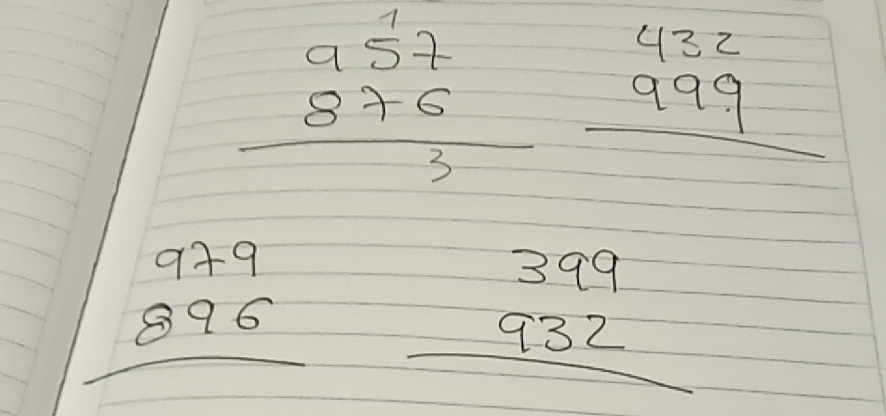 1
957
876
3
432
999
979
896
399
932